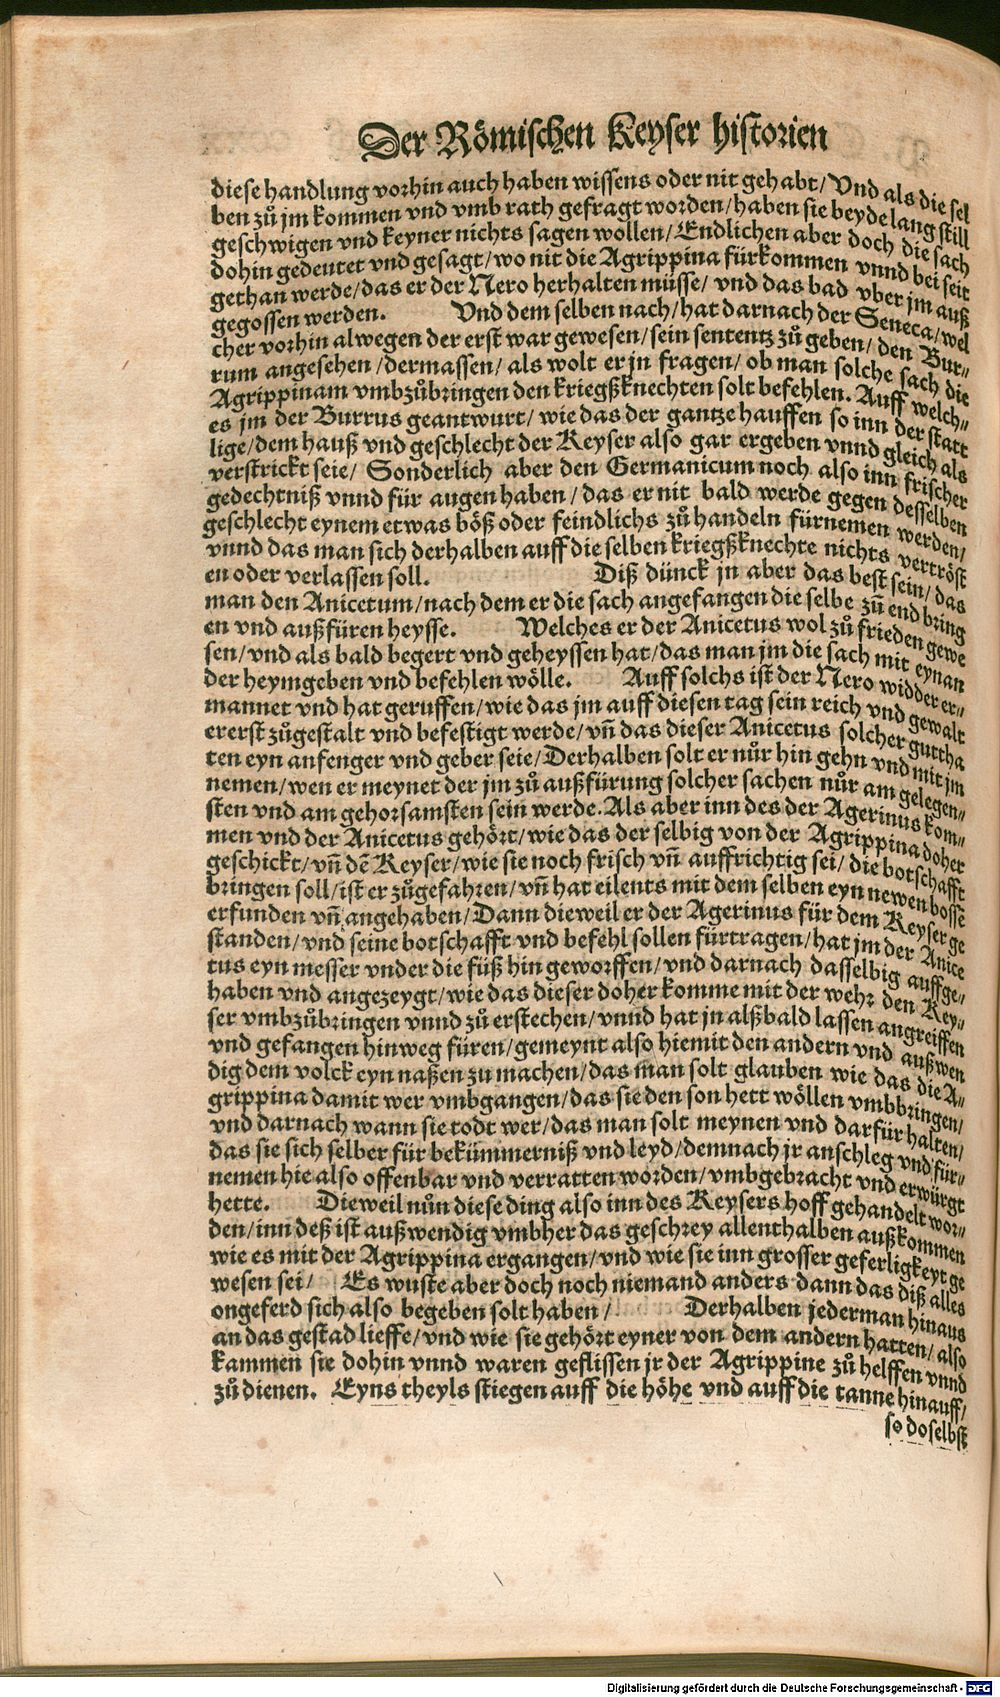 Der Römischen Keyser historien
diese handlung vorhin auch haben wissens oder nit gehabt/ Vnd als die sel
ben zů jm kommen vnd vmb rath gefragt worden/ haben sie beyde lang still
geschwigen vnd keyner nichts sagen wollen/ Endlichen aber doch die sach
dohin gedeutet vnd gesagt/ wo nit die Agrippina fürkommen vnnd bei seit
gethan werde/ das er der Nero herhalten müsse/ vnd das bad vber jm auß
gegossen werden. Vnd dem selben nach/ hat darnach der Seneca/ wel
cher vorhin alwegen der erst war gewesen/ sein sententz zů geben/ den Bur⸗
rum angesehen/ dermassen/ als wolt er jn fragen/ ob man solche sach die
Agrippinam vmbzůbringen den kriegßknechten solt befehlen. Auff welch⸗
es jm der Burrus geantwurt/ wie das der gantze hauffen so inn der statt
lige/ dem hauß vnd geschlecht der Keyser also gar ergeben vnnd gleich als
verstrickt seie/ Sonderlich aber den Germanicum noch also inn frischer
gedechtniß vnnd für augen haben/ das er nit bald werde gegen desselben
geschlecht eynem etwas böß oder feindlichs zů handeln fürnemen werden/
vnnd das man sich derhalben auff die selben kriegßknechte nichts vertröst
en oder verlassen soll. Diß dünck jn aber das best sein/ das
man den Anicetum/ nach dem er die sach angefangen die selbe zů end bring
en vnd außfüren heysse. Welches er der Anicetus wol zů frieden gewe
sen/ vnd als bald begert vnd geheyssen hat/ das man jm die sach mit eynan
der heymgeben vnd befehlen wölle. Auff solchs ist der Nero widder er⸗
mannet vnd hat geruffen/ wie das jm auff diesen tag sein reich vnd gewalt
ererst zůgestalt vnd befestigt werde/ vñ das dieser Anicetus solcher guttha
ten eyn anfenger vnd geber seie/ Derhalben solt er nůr hin gehn vnd mit jm
nemen/ wen er meynet der jm zů außfürung solcher sachen nůr am gelegen⸗
sten vnd am gehorsamsten sein werde. Als aber inn des der Agerinus kom⸗
men vnd der Anicetus gehört/ wie das der selbig von der Agrippina doher
geschickt/ vñ dẽ Keyser/ wie sie noch frisch vñ auffrichtig sei/ die botschafft
bringen soll/ ist er zůgefahren/ vñ hat eilents mit dem selben eyn newen bosse
erfunden vñ angehaben/ Dann dieweil er der Agerinus für dem Keyser ge
standen/ vnd seine botschafft vnd befehl sollen fürtragen/ hat jm der Anice
tus eyn messer vnder die füß hin geworffen/ vnd darnach dasselbig auffge⸗
haben vnd angezeygt/ wie das dieser doher komme mit der wehr den Key⸗
ser vmbzůbringen vnnd zů erstechen/ vnnd hat jn alßbald lassen angreiffen
vnd gefangen hinweg füren/ gemeynt also hiemit den andern vnd außwen
dig dem volck eyn naßen zu machen/ das man solt glauben wie das die A⸗
grippina damit wer vmbgangen/ das sie den son hett wöllen vmbbringen/
vnd darnach wann sie todt wer/ das man solt meynen vnd darfür halten/
das sie sich selber für bekümmerniß vnd leyd/ demnach jr anschleg vnd für⸗
nemen hie also offenbar vnd verratten worden/ vmbgebracht vnd erwürgt
hette. Dieweil nůn diese ding also inn des Keysers hoff gehandelt wor⸗
den/ inn deß ist außwendig vmbher das geschrey allenthalben außkommen
wie es mit der Agrippina ergangen/ vnd wie sie inn grosser geferligkeyt ge
wesen sei/ Es wuste aber doch noch niemand anders dann das diß alles
ongeferd sich also begeben solt haben/ Derhalben jederman hinaus
an das gestad lieffe/ vnd wie sie gehört eyner von dem andern hatten/ also
kammen sie dohin vnnd waren geflissen jr der Agrippine zů helffen vnnd
zů dienen. Eyns theyls stiegen auff die höhe vnd auff die tanne hinauff/
so doselbst
Digitalisierung gefördert durch die Deutsche Forschungsgemeinschaft - DFG